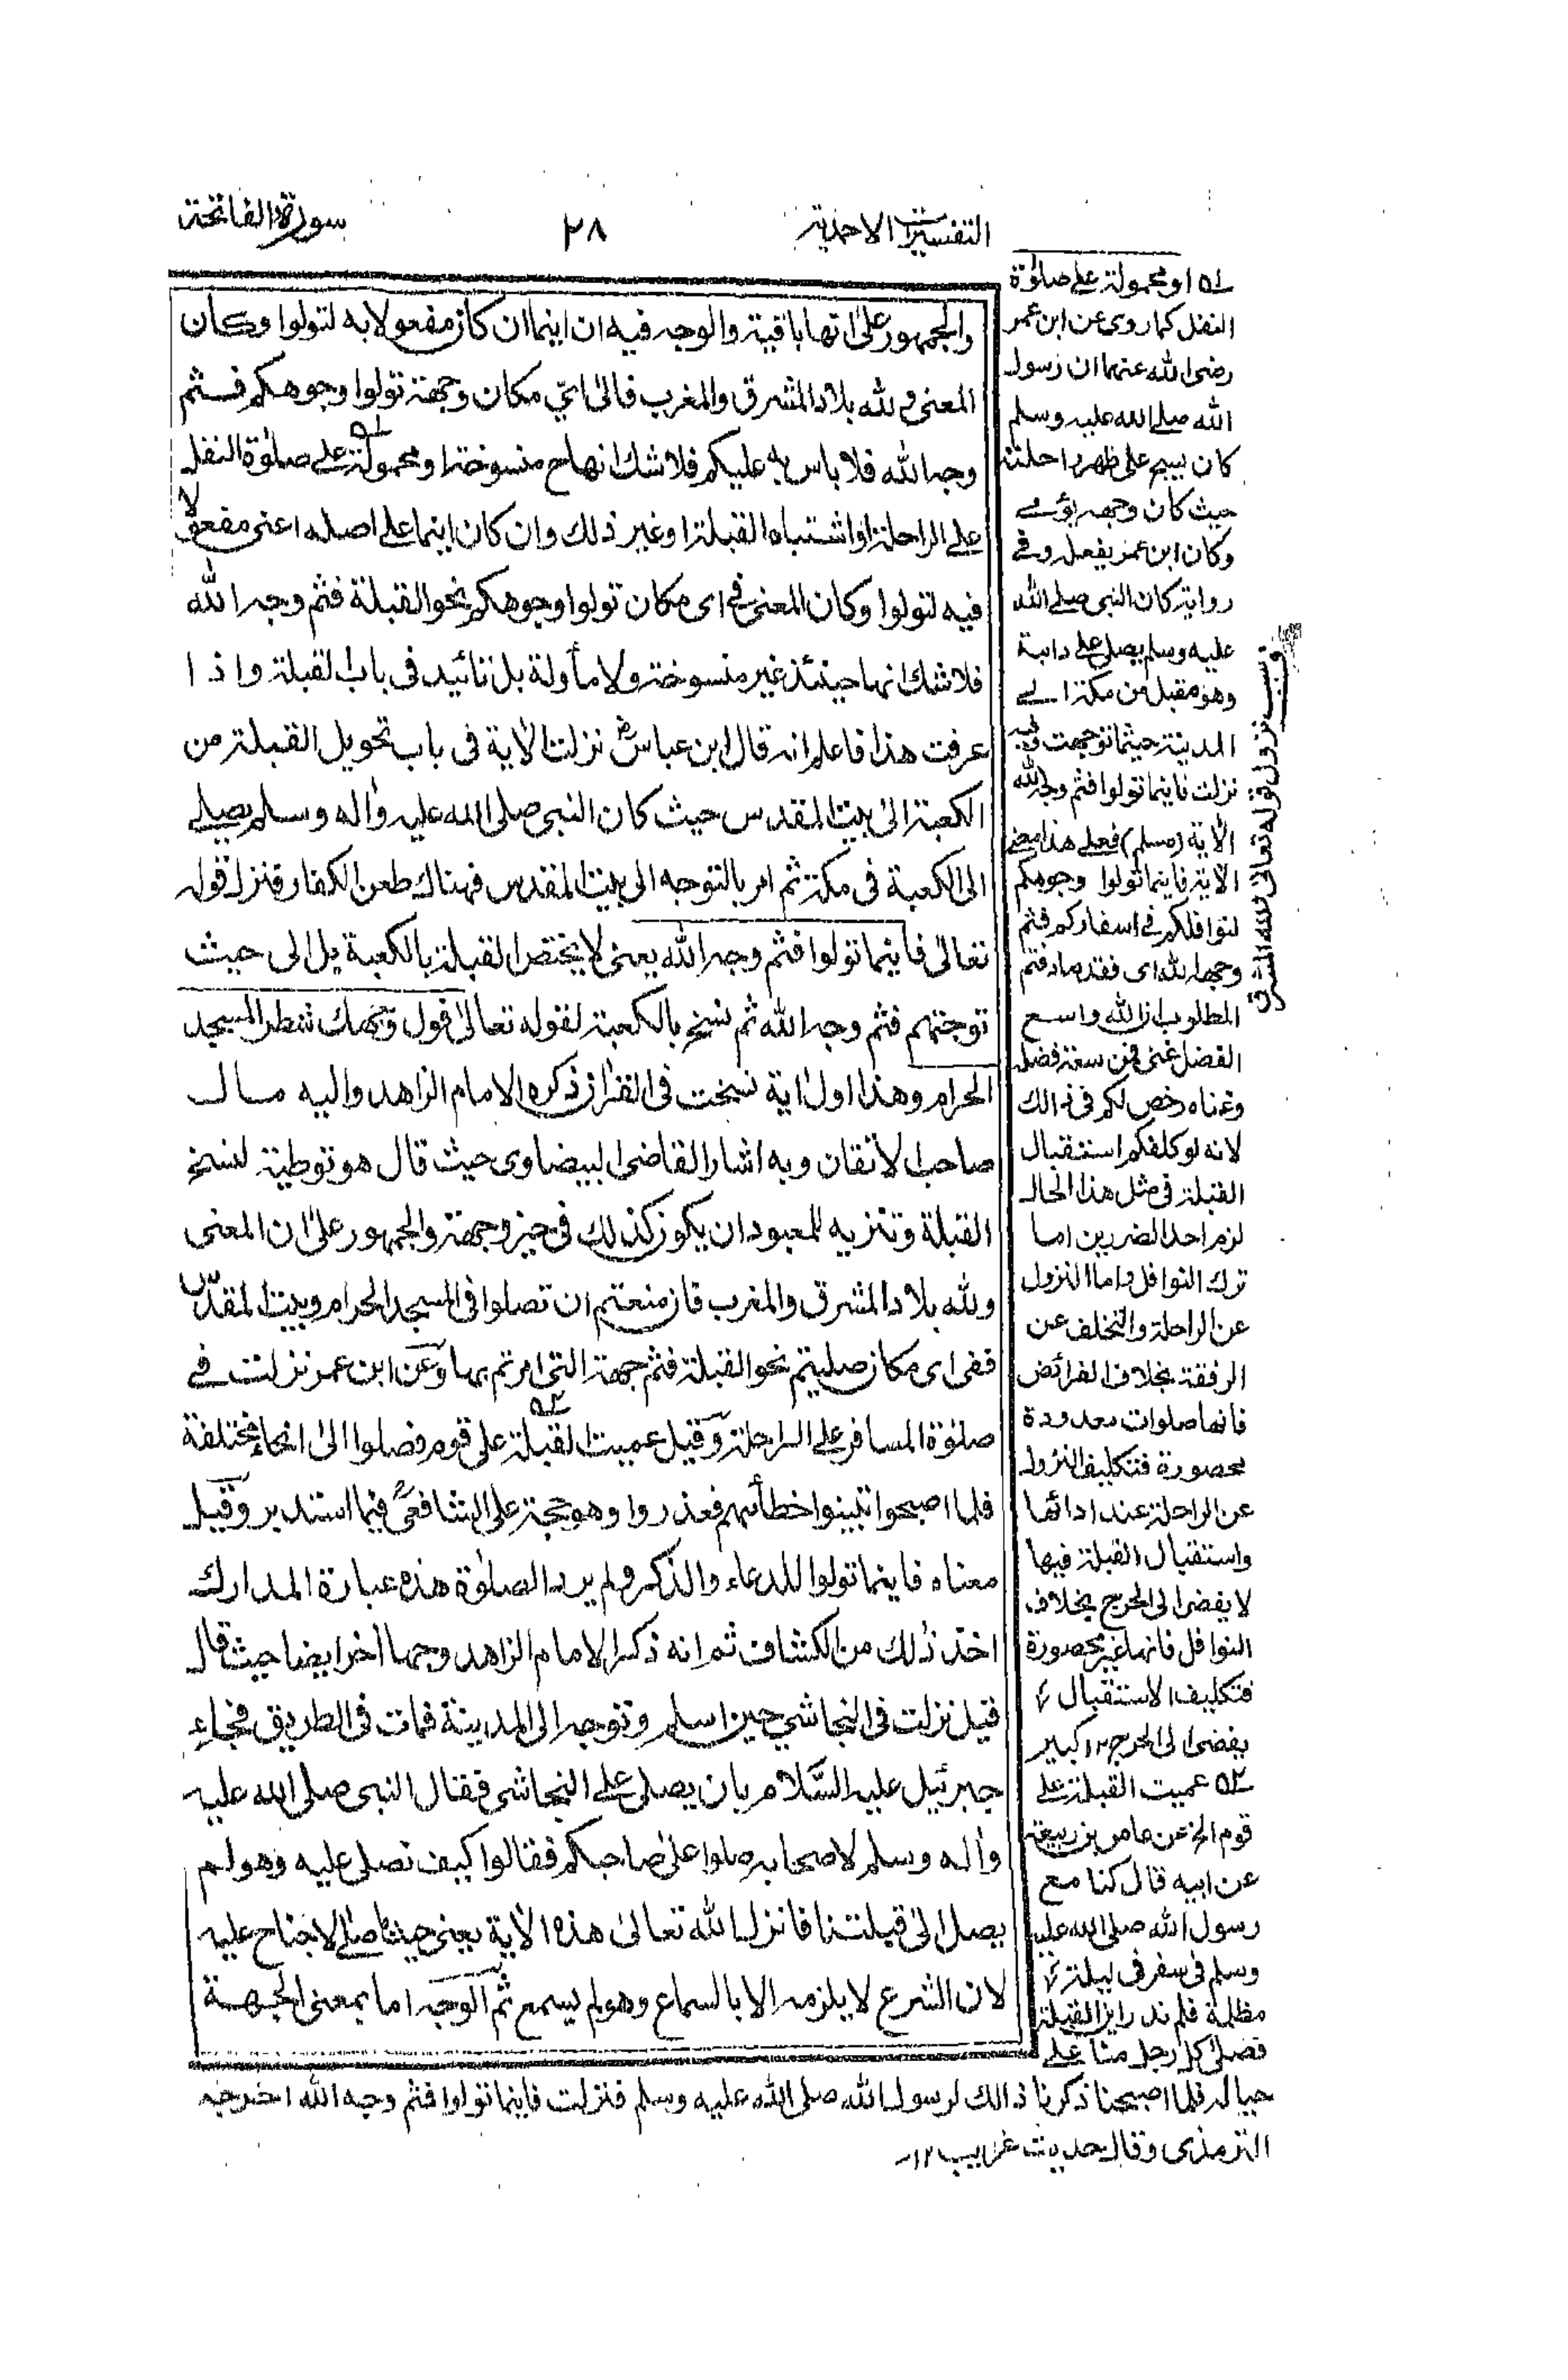 التفسيرات الاحمدية
٢٨
سورة الفاتحة
والجمهور على انها باقية والوجه فيه ان اينما ان كان مفعولا به لتولوا وكان
المعنى ولله بلاد المشرق والمغرب فالى اىّ مكان وجهة تولوا وجوهكم فثم
وجه الله فلا باس به عليكم فلا شك انها ح منسوخة او محمولة على صلوٰة النفل
على الراحلة او اشتباه القبلة او غير ذلك وان كان اينما على اصله اعنى مفعولا
فيه لتولوا وكان المعنى فى اى مكان تولوا وجوهكم نحو القبلة فثم وجه الله
فلا شك انها حينئذ غير منسوخة ولا مأولة بل تائيد فى باب القبلة واذا
عرفت هذا فاعلم انه قال ابن عباسؓ نزلت الاٰية فى باب تحويل القبلة من
الكعبة الى بيت المقدس حيث كان النبى صلى الله عليه واٰله وسلم يصلى
الى الكعبة فى مكة ثم امر بالتوجه الى بيت المقدس فهناك طعن الكفار فنزل قوله
تعالىٰ فاينما تولوا فثم وجه الله يعنى لا يختص القبلة بالكعبة بل الى حيث
توجهتم فثم وجه الله ثم نسخ بالكعبة لقوله تعالىٰ فول وجهك شطر المسجد
الحرام وهذا اول اٰية نسخت فى القراٰن ذكره الامام الزاهد واليه مال
صاحب الاتقان وبه اشار القاضى البيضاوى حيث قال هو توطية لنسخ
القبلة وتنزيه للمعبود ان يكون كذلك فى حيز وجهة والجمهور على ان المعنى
ولله بلاد المشرق والمغرب فان منعتم ان تصلوا فى المسجد الحرام وبيت المقدس
ففى اى مكان صليتم نحو القبلة فثم جهة التى امرتم بها وعن ابن عمر نزلت فى
صلوٰة المسافر على الراحلة وقيل عميت القبلة على قوم فصلوا الىٰ انحاء مختلفة
فلما اصبحوا تبينوا خطأهم فعذروا وهو حجة على الشافعىؒ فيما استدبر وقيل
معناه فاينما تولوا للدعاء والذكر ولم يرد الصلوٰة هذه عبارة المدارك
اخذ ذلك من الكشاف ثم انه ذكر الامام الزاهد وجها اٰخر ايضا حيث قال
قيل نزلت فى النجاشي حين اسلم وتوجه الى المدينة فمات فى الطريق فجاء
جبرئيل عليه السَّلام بان يصلى على النجاشى فقال النبى صلى الله عليه
واٰله وسلم لاصحابه صلوا على صاحبكم فقالوا كيف نصلى عليه وهو لم
يصل الىٰ قبلتنا فانزل الله تعالىٰ هذه الاٰية يعنى حيثما صلى لا جناح عليه
لان الشرع لا يلزمه الا بالسماع وهو لم يسمع ثم الوجه اما بمعنى الجهة
١ه او محمولة على صلوٰة
النفل كما روى عن ابن عمر
رضى الله عنهما ان رسول
الله صلى الله عليه وسلم
كان يسبح على ظهر راحلته
حيث كان وجهه يؤمى
وكان ابن عمر يفعله وفى
رواية كان النبى صلى الله
عليه وسلم يصلى على دابة
وهو مقبل من مكة الى
المدينة حيثما توجهت وفيه
نزلت فاينما تولوا فثم وجه الله
الاٰية (مسلم) فعلى هذا معنى
الاٰية فاينما تولوا وجوهكم
لنوافلكم فى اسفاركم فثم
وجه الله اى فقد صادفتم
المطلوب ان الله واسع
الفضل غنى فمن سعة فضله
وغناه رخص لكم فى ذالك
لانه لو كلفكم استقبال
القبلة فى مثل هذا الحال
لزم احد الضررين اما
ترك النوافل واما النزول
عن الراحلة والتخلف عن
الرفقة بخلاف الفرائض
فانها صلوات معدودة
محصورة فتكليف النزول
عن الراحلة عند ادائها
واستقبال القبلة فيها
لا يفضى الى الحرج بخلاف
النوافل فانها غير محصورة
فتكليف الاستقبال
يفضى الى الحرج ١٢ كبير
٢ه عميت القبلة على
قوم الخ عن عامر بن ربيعة
عن ابيه قال كنا مع
رسول الله صلى الله عليه
وسلم فى سفر فى ليلة
مظلمة فلم ندر اين القبلة
فصلى كل رجل منا على
حياله فلما اصبحنا ذكرنا ذالك لرسول الله صلى الله عليه وسلم فنزلت فاينما تولوا فثم وجه الله اخرجه
الترمذى وقال حديث غريب ١٢
سبب نزول قوله تعالىٰ لله المشرق